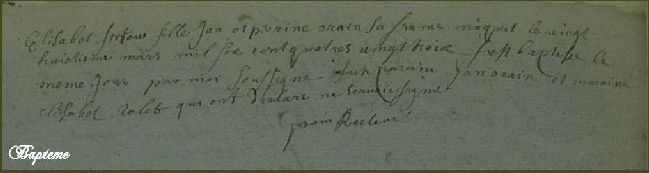 Elisabet fille Jan et perine orain sa fame naquit le vingt
huictiesme mars mil six cent quatres vingt trois fust baptisee le
meme Jour par moi soussigne fut parain Jan orain et maraine
Elisabet qui ont declare ne scavoir signe
Recteur
Bapteme